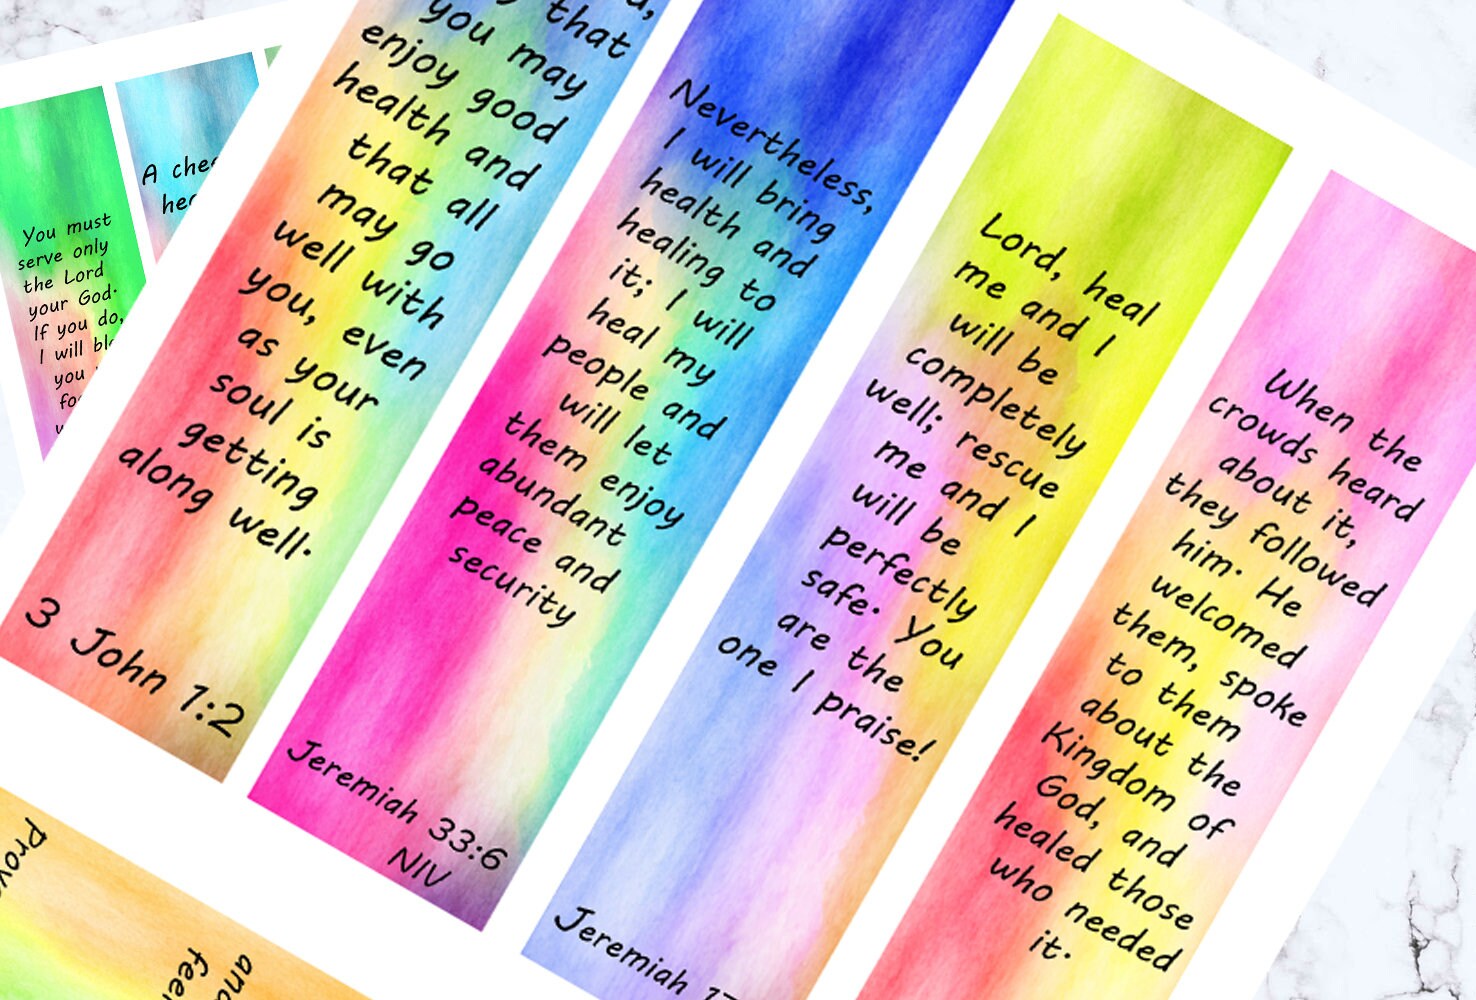 You must
serve only
the Lord
your God.
If you do,
I will
you
A
that
you may
enjoy good
health and
that all
may go
well with
you, even
as your
soul is
getting
along well.
3 John 1:2
Nevertheless,
I will bring
health and
healing to
it; I will
heal my
people and
will let
them enjoy
abundant
peace and
security
Jeremiah 33:6
NIV
Lord, heal
me and I
will be
completely
well; rescue
me and I
will be
perfectly
safe. You
are the
one I praise!
Jeremiah
When the
crowds heard
about it,
they followed
him. He
welcomed
them, spoke
to them
about the
Kingdom of
God, and
healed those
who needed
it.